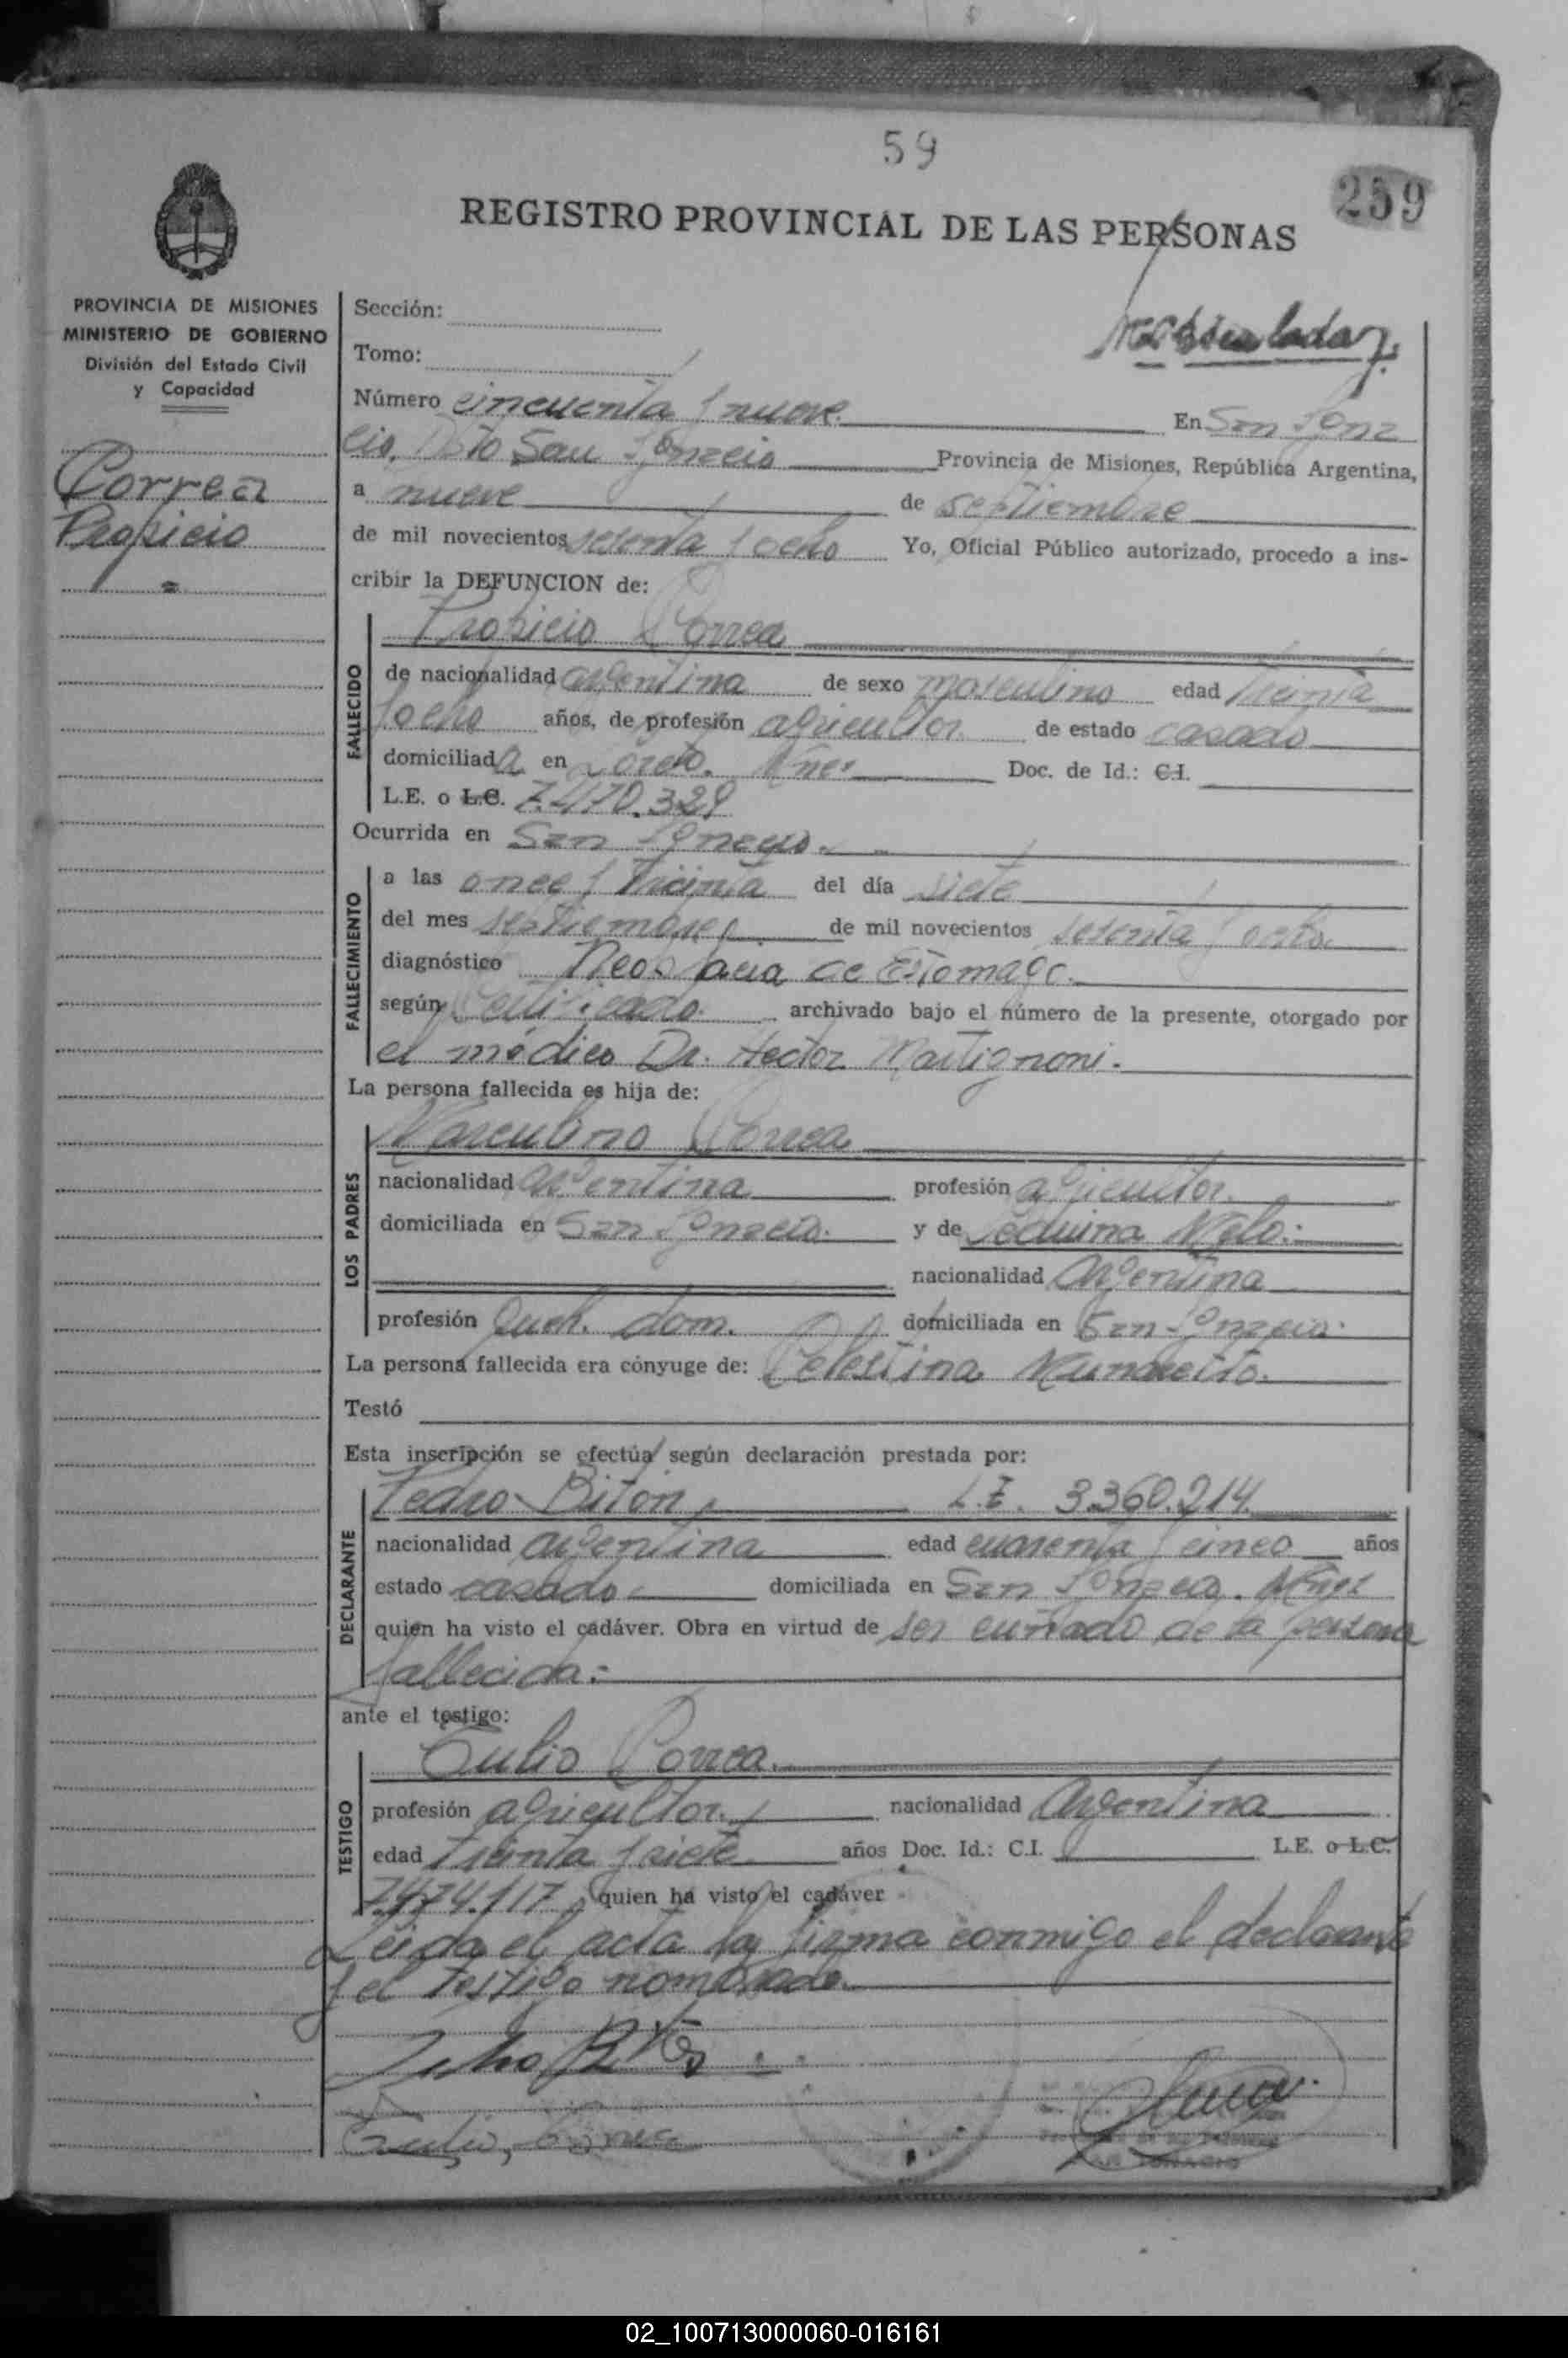 59
259
REGISTRO PROVINCIAL DE LAS PERSONAS
PROVINCIA DE MISIONES
MINISTERIO DE GOBIERNO
División del Estado Civil
y Capacidad
Correa
Propicio
Sección:
Tomo:
Número cincuenta y nueve. En San Igna
cio. Dpto San Ignacio Provincia de Misiones, República Argentina,
a nueve de septiembre
de mil novecientos sesenta y ocho Yo, Oficial Público autorizado, procedo a ins-
cribir la DEFUNCION de:
Propicio Correa
FALLECIDO
de nacionalidad argentina de sexo masculino edad treinta
y ocho años, de profesión agricultor de estado casado
domiciliada en Loreto. Mnes Doc. de Id.: C.I.
L.E. o L.C. 7.470.329
Ocurrida en San Ignacio.
FALLECIMIENTO
a las once y treinta del día siete
del mes septiembre de mil novecientos sesenta y ocho
diagnóstico Neoplacia de Estomago.
según Certificado archivado bajo el número de la presente, otorgado por
el médico Dr. Hector Martignoni.
La persona fallecida es hija de:
LOS PADRES
Marculino Correa
nacionalidad argentina profesión agricultor.
domiciliada en San Ignacio. y de Melo.
nacionalidad Argentina
profesión Queh. dom. domiciliada en San Ignacio.
La persona fallecida era cónyuge de: Celestina
Testó
Esta inscripción se efectúa según declaración prestada por:
DECLARANTE
Pedro Biton L.E. 3.360.214.
nacionalidad argentina edad cuarenta y cinco años
estado casado domiciliada en San Ignacio. Mnes
quien ha visto el cadáver. Obra en virtud de ser cuñado de la persona
fallecida:
ante el testigo:
TESTIGO
Tulio Correa.
profesión agricultor. nacionalidad Argentina
edad treinta y siete años Doc. Id.: C.I. L.E. o L.C.
7.474.117 quien ha visto el cadáver
Leida el acta la firma conmigo el declarante
y el testigo nombrado.
Tulio, Correa
02_100713000060-016161